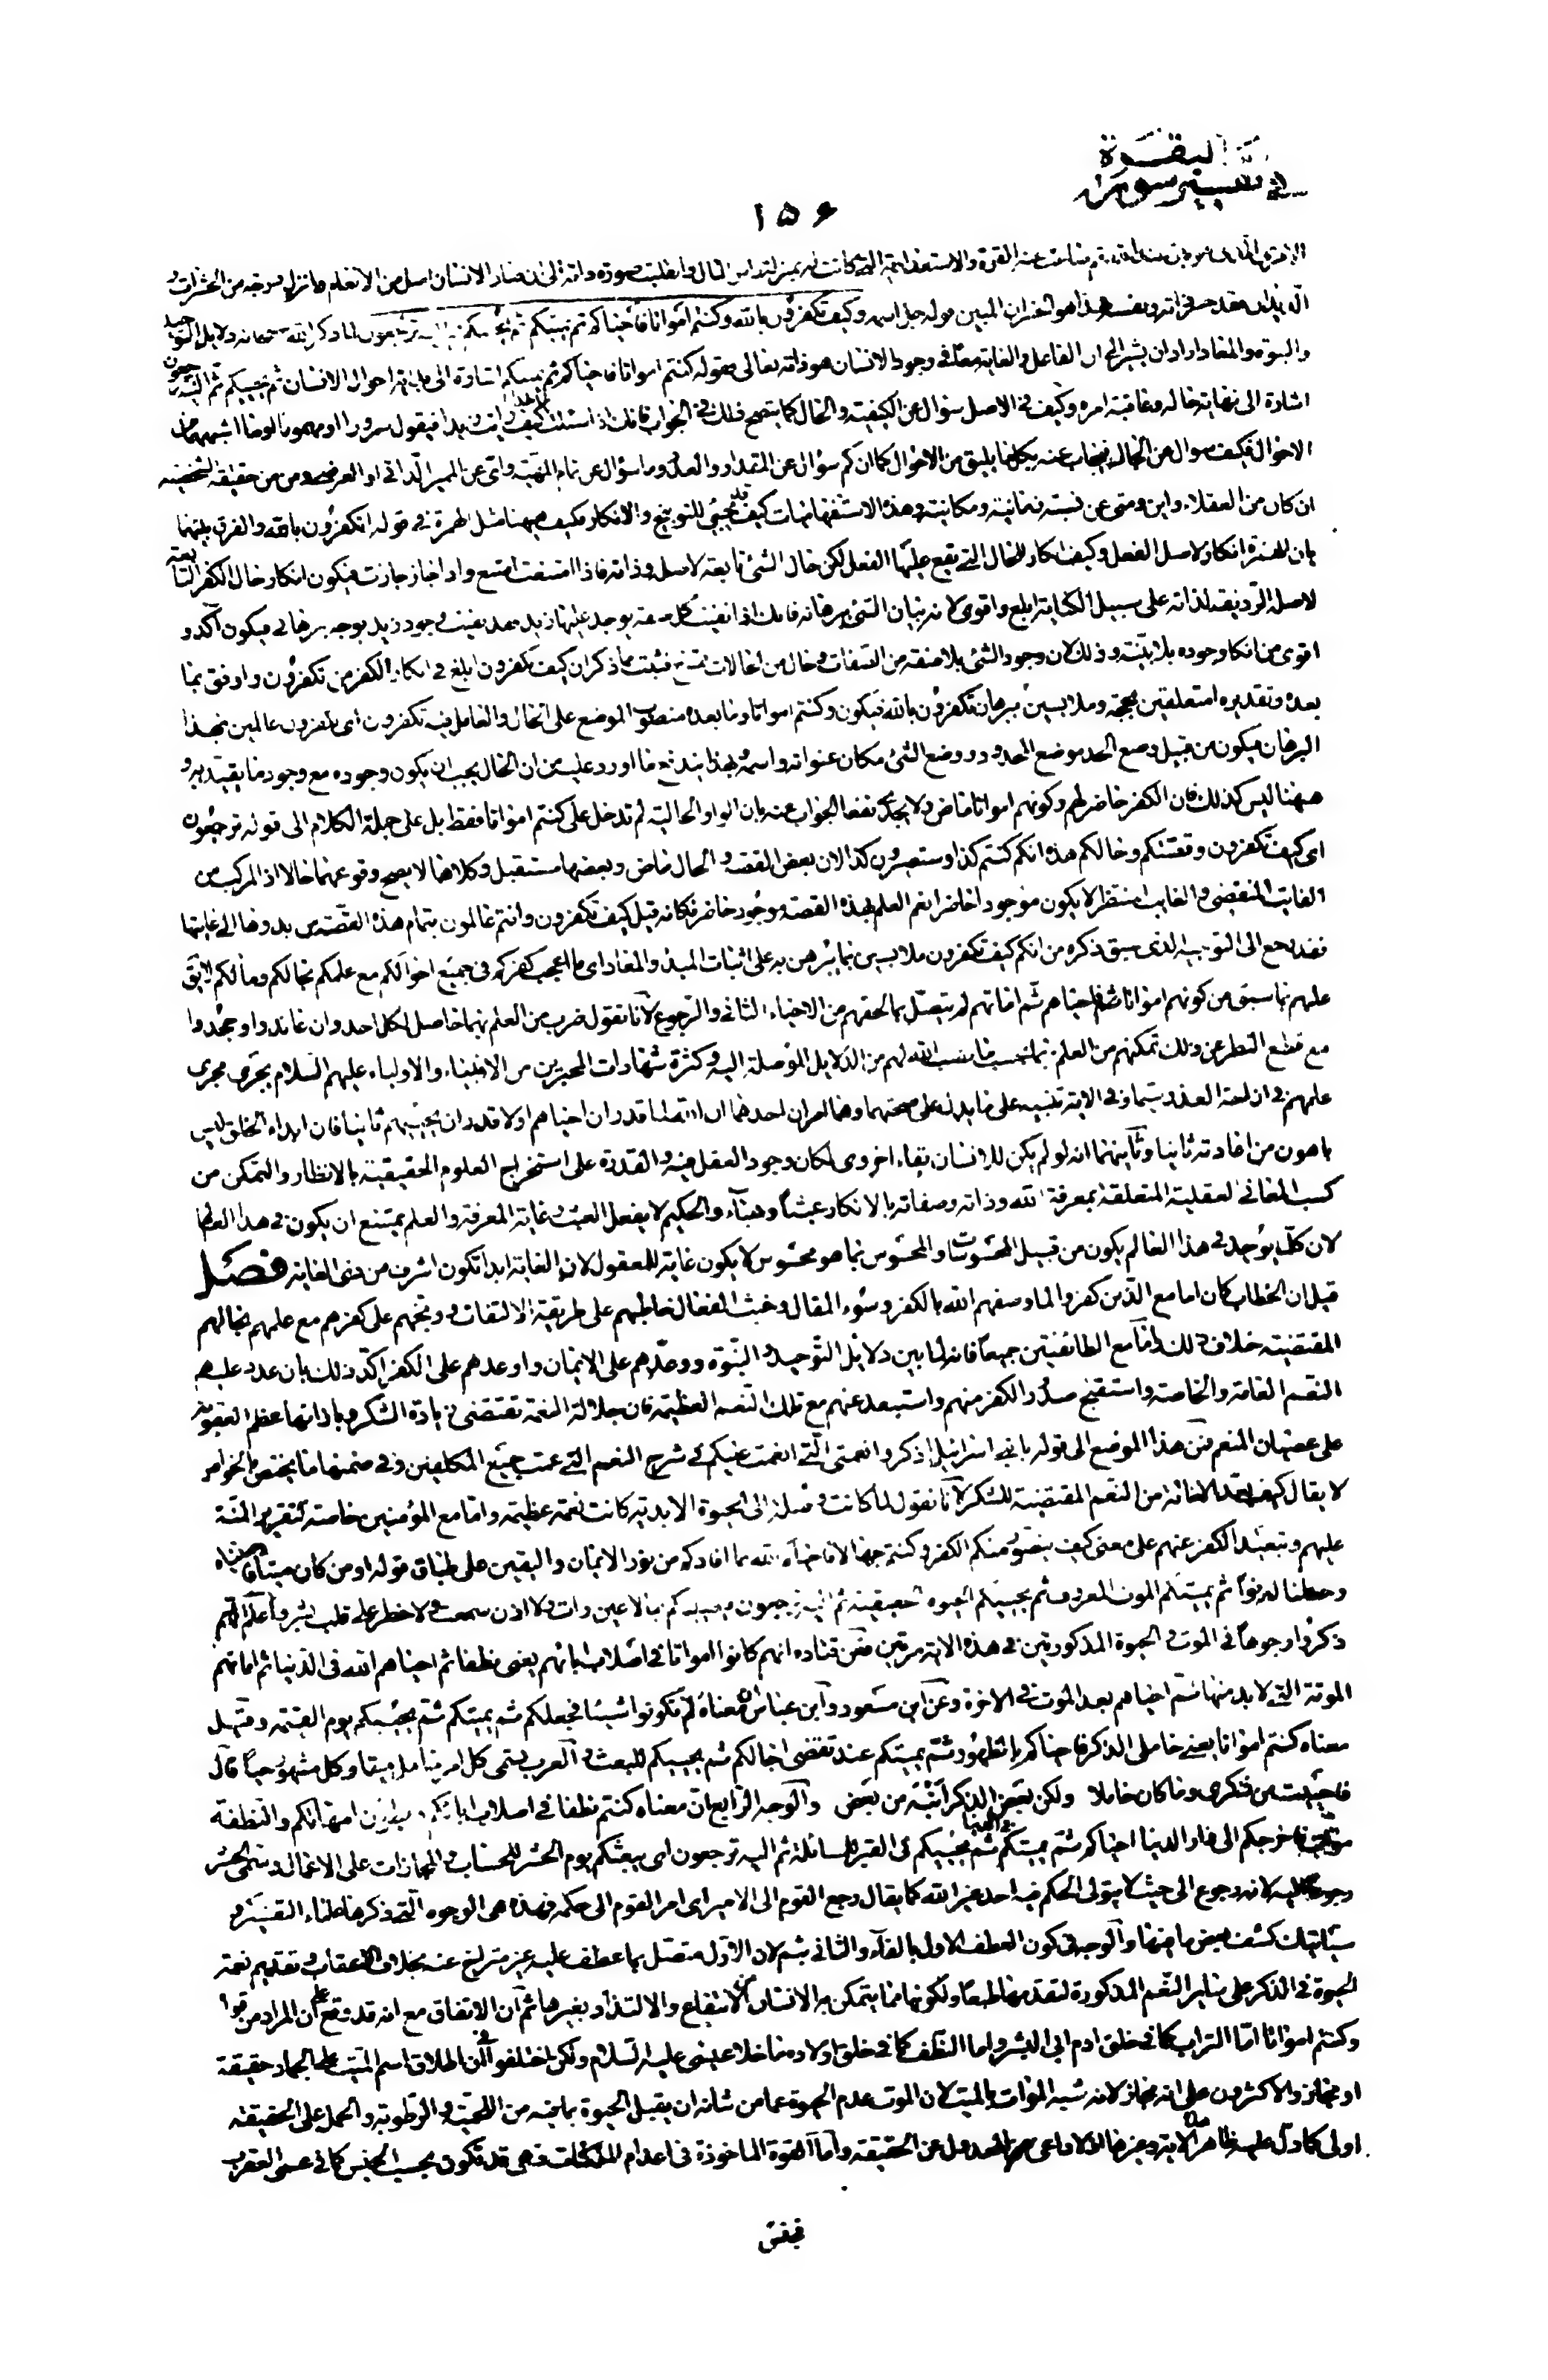 البقرة
في تفسير سورة
١٥۶
ضلت عنه القوة والاستعدادية التي كانت له بمنزلة راس المال وانقلبت صورة ذاته الى ان صار الانسان اضل من الانعام وانزل درجة من الحشرات
فقد خسر ذاته ونفسه هذا هو الخسران المبين قوله جل اسمه وكيف تكفرون بالله وكنتم امواتا فاحياكم ثم يميتكم ثم يحييكم ثم اليه ترجعون لما ذكر الله سبحانه دلايل التوحيد
والنبوة والمعاد اراد ان يشير الى ان الفاعل والغاية معا في وجود الانسان هو ذاته تعالى فقوله كنتم امواتا فاحياكم ثم يميتكم اشارة الى احوال الانسان ثم يحييكم ثم اليه ترجعون
اشارة الى نهاية حاله وعاقبة امره وكيف في الاصل سؤال عن الكيفية والحال كما يتضح ذلك في الجواب فانك اذا سئلت كيف زيدا فيقول مسرورا او مهموما او ما اشبههما من
الاحوال فكيف سؤال عن الحال فيجاب عنه بكل ما يليق من الاحوال كما ان كم سؤال عن المقدار والعدد وما سؤال عن تمام المهية واي عن المميز الذاتي او العرضي ومن من حقيقة شخصية
ان كان من العقلاء واين ومتى عن نسبته زمانية ومكانية وهذه الاستفهامات كيف قد يجيئ للتوبيخ والانكار فكيف ههنا مثل الهمزة في قوله اتكفرون بالله والفرق بينهما
بان الهمزة انكار لاصل الفعل وكيف انكار للحال التي يقع عليها الفعل لكن حال الشئ تابعة لاصله وذاته فاذا امتنعت امتنع واذا جاز جازت فيكون انكار حال الكفر التابعة
لاصله الرديفة لذاته على سبيل الكناية ابلغ واقوى لانه بيان الشئ ببرهانه فانك اذا نفيت كل صفة يوجد عليها زيد فقد نفيت وجود زيد بوجه برهاني فيكون آكد و
اقوى من انكار وجوده بلا بينة وذلك لان وجود الشئ بلا صفة من الصفات وحال من الحالات ممتنع فثبت مما ذكر ان كيف تكفرون ابلغ في انكار الكفر من تكفرون واوفق بما
بعده وتقديره امتعلقين بحجة وملابسين ببرهان تكفرون بالله فيكون وكنتم امواتا وما بعده منصوب الموضع على الحال والعامل فيه تكفرون اي تكفرون عالمين بهذا
البرهان فيكون من قبيل وضع الحد موضع المحدود ووضع الشئ مكان عنوانه واسمه وبهذا يندفع ما اورد عليه من ان الحال يجب ان يكون وجوده مع وجود ما يقيد به و
ههنا ليس كذلك فان الكفر حاضر لهم وكونهم امواتا ماض ولا يجدي نفعا الجواب عنه بان الواو الحالية لم تدخل على كنتم امواتا فقط بل على جملة الكلام الى قوله ترجعون
اي كيف تكفرون وقصتكم وحالكم هذه انكم كنتم كذا وستصيرون كذا لان بعض القصة والحال ماض وبعضها مستقبل وكلاهما لا يصح وقوعهما حالا اذ المركب من
الغايب المنقضي والغايب المنتظر لا يكون موجودا حاضرا نعم العلم بهذه القصة موجود حاضر فكانه قيل كيف تكفرون وانتم عالمون بتمام هذه القصة من بدوها الى غايتها
فقد رجع الى التوجيه الذي سبق ذكره من انكم كيف تكفرون ملابسين بما يبرهن به على اثبات المبدء والمعاد اي ما اعجب كفركم في جميع احوالكم مع علمكم بحالكم ومآلكم لايق
علمهم بما سبق من كونهم امواتا فاحياهم ثم اماتهم لم يتصل بما لحقهم من الاحياء الثاني والرجوع لانا نقول ضرب من العلم بهما حاصل لكل احد وان عاندوا وجحدوا
مع قطع النظر عن ذلك تمكنهم من العلم بهما بحسب ما نصب الله لهم من الدلايل الموصلة اليه وكثرة شهادات المخبرين من الانبياء والاولياء عليهم السلام يجري مجرى
علمهم في ازاحة العذر سيما وفي الاية تنبيه على ما يدل على صحتهما وهما امران احدهما ان الله لما قدر ان احياهم اولا قدر ان يحييهم ثانيا فان ابداء الخلق ليس
باهون من اعادته ثانيا وثانيهما انه لو لم يكن للانسان بقاء اخروي لكان وجود العقل فيه والقدرة على استخراج العلوم الحقيقية بالانظار والتمكن من
كسب المعاني العقلية المتعلقة بمعرفة الله وذاته وصفاته بالافكار عبثا وهباء والحكيم لا يفعل العبث وغاية المعرفة والعلم يمتنع ان يكون في هذا العالم
لان كلما يوجد في هذا العالم يكون من قبيل المحسوسات والمحسوس بما هو محسوس لا يكون غاية للمعقول لان الغاية ابدا تكون اشرف من ذي الغاية فصل
قيل ان الخطاب كان اما مع الذين كفروا لما وصفهم الله بالكفر وسوء المقال وخبث الفعال خاطبهم على طريقة الالتفات ووبخهم على كفرهم مع علمهم بحالهم
المقتضية خلاف ذلك واما مع الطائفتين جميعا فانه لما بين دلايل التوحيد والنبوة ووعدهم على الايمان واوعدهم على الكفر اكد ذلك بان عدد عليهم
النعم العامة والخاصة واستقبح صدور الكفر منهم واستبعد عنهم مع تلك النعم العظيمة فان جلالة النعمة تقتضي زيادة الشكر وبازائها عظم العقوبة
على عصيان المنعم فمن هذا الموضع الى قوله يا بني اسرائيل اذكروا نعمتي التي انعمت عليكم في شرح النعم التي عمت جميع المكلفين وفي ضمنها ما يختص بالخواص
لا يقال كيف يعد الاماتة من النعم المقتضية للشكر لانا نقول لما كانت وصلة الى الحيوة الابدية كانت نعمة عظيمة واما مع المؤمنين خاصة لتقرير المنة
عليهم وتبعيد الكفر عنهم على معنى كيف يتصور منكم الكفر وكنتم جهالا فاحياكم الله بما افادكم من نور الايمان واليقين على طباق قوله اومن كان ميتا فاحييناه
وجعلنا له نورا ثم يميتكم الموت المعروف ثم يحييكم الحيوة الحقيقية ثم اليه ترجعون فيثيبكم بما لا عين رأت ولا اذن سمعت ولا خطر على قلب بشر واعلم انهم
ذكروا وجوها في الموت والحيوة المذكورتين في هذه الاية مرتين فعن قتادة انهم كانوا امواتا في اصلاب ابائهم يعني نطفا ثم احياهم الله في الدنيا ثم اماتهم
الموتة التي لا بد منها ثم احياهم بعد الموت في الاخرة وعن ابن مسعود وابن عباس ان معناه لم تكونوا شيئا فجعلكم ثم يميتكم ثم يحييكم يوم القيمة وقيل
معناه كنتم امواتا يعني خاملي الذكر فاحياكم بالظهور ثم يميتكم عند تقضى اجالكم ثم يحييكم للبعث والعرب يسمى كل امر خامل ميتا وكل مشهور حيا قال
فاحييت من ذكري وما كان خاملا ولكن بعض الذكر انبه من بعض والوجه الرابع ان معناه كنتم نطفا في اصلاب ابائكم وبطون امهاتكم والنطفة
موات فاخرجكم الى دار الدنيا احياكم ثم يميتكم ثم يحييكم في القبر للمسائلة ثم اليه ترجعون اي يبعثكم يوم الحشر للحساب والمجازات على الاعمال وسمى الحشر
رجوعا اليه لانه رجوع الى حيث لا يتولى الحكم فيه احد غير الله كما يقال رجع القوم الى الامير اي امر القوم الى حكمه فهذه هي الوجوه التي ذكرها علماء التفسير و
سيأتيك كشف بعض ما فيها والوجه في كون العطف الاول بالفاء والثاني بثم لان الاول متصل بما عطف عليه غير متراخ عنه بخلاف الاعقاب وتقديم نعمة
الحيوة في الذكر على ساير النعم المذكورة لتقدمها طبعا ولكونها مما يتمكن به الانسان من الانتفاع والالتذاذ بغيرها ثم ان الاتفاق مع انه قد وقع على ان المراد من قوله
وكنتم امواتا اما التراب كما في خلق ادم ابي البشر واما النطف كما في خلق اولاده ما خلا عيسى عليه السلام ولكن اختلفوا في ان اطلاق اسم الميت على الجماد حقيقة
او مجاز والاكثرون على انه مجاز لانه شبه الموات بالميت لان الموت عدم الحيوة عما من شانه ان يقبل الحيوة بما فيه من اللحمية والرطوبة والحمل على الحقيقة
اولى كما دل عليه ظاهر الاية وغيرها اذ لا داعي للعدول عن الحقيقة واما القوة الماخوذة في اعدام الملكات فهي قد تكون بحسب الجنس كما في عمى العقرب
ففى